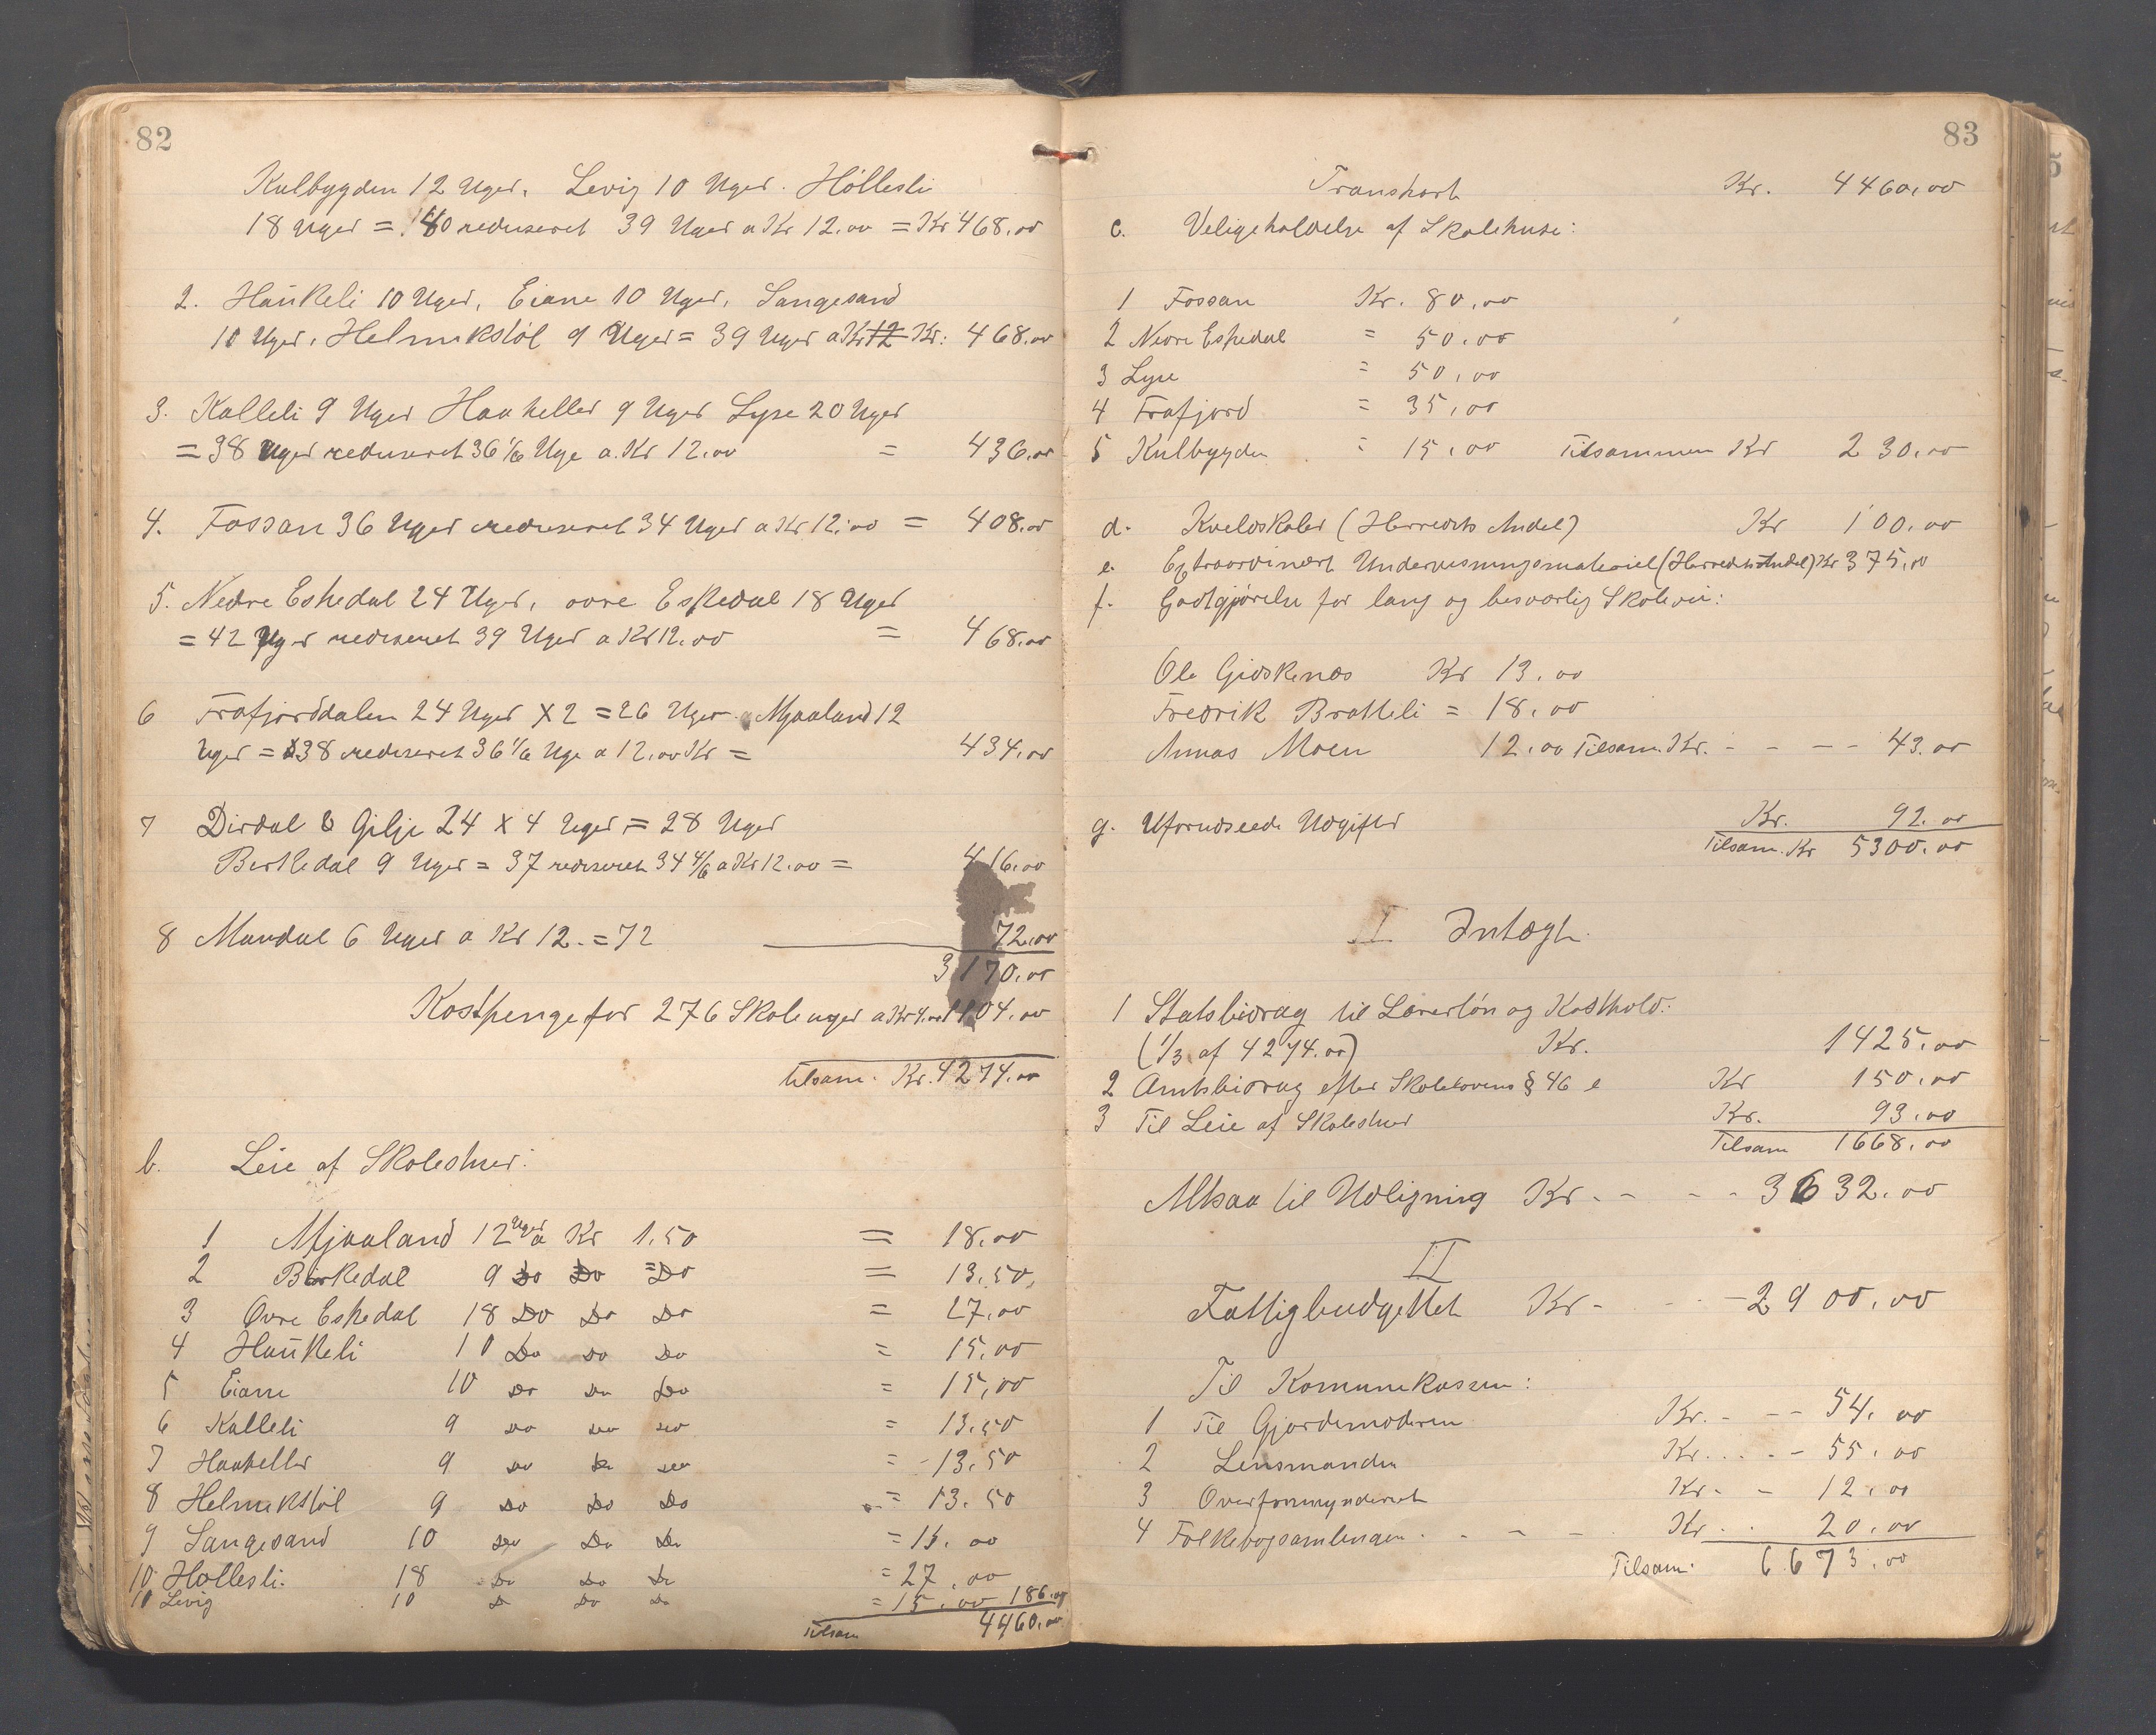 82
Kulbygden 12 Uger, Levig 10 Uger. Höllesli
18 Uger = 40 reduseret 39 Uger a Kr 12.00 = Kr 468.00
2. Haukeli 10 Uger, Eiane 10 Uger, Sangesand
10 Uger, Helmikstöl 9 Uger = 39 Uger a Kr 12 Kr: 468.00
3. Kalleli 9 Uger Haaheller 9 Uger Lyse 20 Uger
= 38 Uger reduseret 36 1/6 Uge a. Kr 12.00 = 436.00
4. Fossan 36 Uger reduseret 34 Uger a Kr 12.00 = 408.00
5. Nedre Eskedal 24 Uger, ovre Eskedal 18 Uger
= 42 Uger reduseret 39 Uger a Kr 12.00 = 468.00
6 Frafjorddalen 24 Uger X 2 = 26 Uger Mjaaland 12
Uger = 38 reduseret 36 1/6 Uge a 12.00 Kr = 434.00
7 Dirdal & Gilje 24 x 4 Uger = 28 Uger
Birkedal 9 Uger = 37 reduseret 34 4/6 a Kr 12.00 = 416.00
8 Mandal 6 Uger a Kr 12. = 72 72.00
3170.00
Kostpenge for 276 Skoleuger a Kr 4.00 1104.00
tilsam. Kr. 4274.00
b. Leie af Skoleshus:
1 Mjaaland 12 Uger a Kr 1.50 = 18.00
2 Birkedal 9 Do Do = Do = 13.50
3 Ovre Eskedal 18 Do Do Do = 27.00
4 Haukeli 10 Do Do Do = 15.00
5 Eiane 10 Do Do Do = 15,00
6 Kalleli 9 Do Do Do = 13.50
7 Haaheller 9 Do Do Do = 13.50
8 Helmikstöl 9 Do Do Do = 13.50
9 Sangesand 10 Do Do Do = 15.00
10 Hollesli. 18 Do Do Do = 27.00
10 Levig 10 Do Do Do = 15.00 186.00
Tilsam 4460.00
83
Transport Kr. 4460,00
c. Veligeholdelse af Skolehuse:
1 Fossan Kr. 80.00
2 Nedre Eskedal = 50.00
3 Lyse = 50.00
4 Frafjord = 35,00
5 Kulbygden = 15.00 Tilsammen Kr 230.00
d. Kveldskoler (Herredets Andel) Kr 100.00
e. Extraordinært Undervisningsmateriel (Herredets Andel) Kr 375.00
f. Godtgjörelse for lang og besværlig Skolevei:
Ole Gidskenæs Kr 13.00
Fredrik Bratteli = 18.00
Annas Moen 12.00 Tilsam. Kr. - - - - 43.00
g. Uforudseede Udgifter Kr. 92.00
Tilsam. Kr 5300.00
I Indtægt.
1 Statsbidrag til Lærerlön og Kosthold:
(1/3 af 4274.00) Kr. 1425.00
2 Amtsbidrag efter Skolelovens § 46 e Kr 150.00
3 Til Leie af Skoleshus Kr. 93.00
Tilsam 1668.00
Altsaa til Udligning Kr. - - - - 3632.00
II
Fattigbudgettet Kr - - 2900.00
Til Komunekassen:
1 Til Gjordemoderen Kr. - - - 54.00
2 Lensmanden Kr. . . . - 55.00
3 Overformynderiet Kr - - 12.00
4 Folkebogsamlingen . - - - Kr . . 20.00
Tilsam. 6673.00